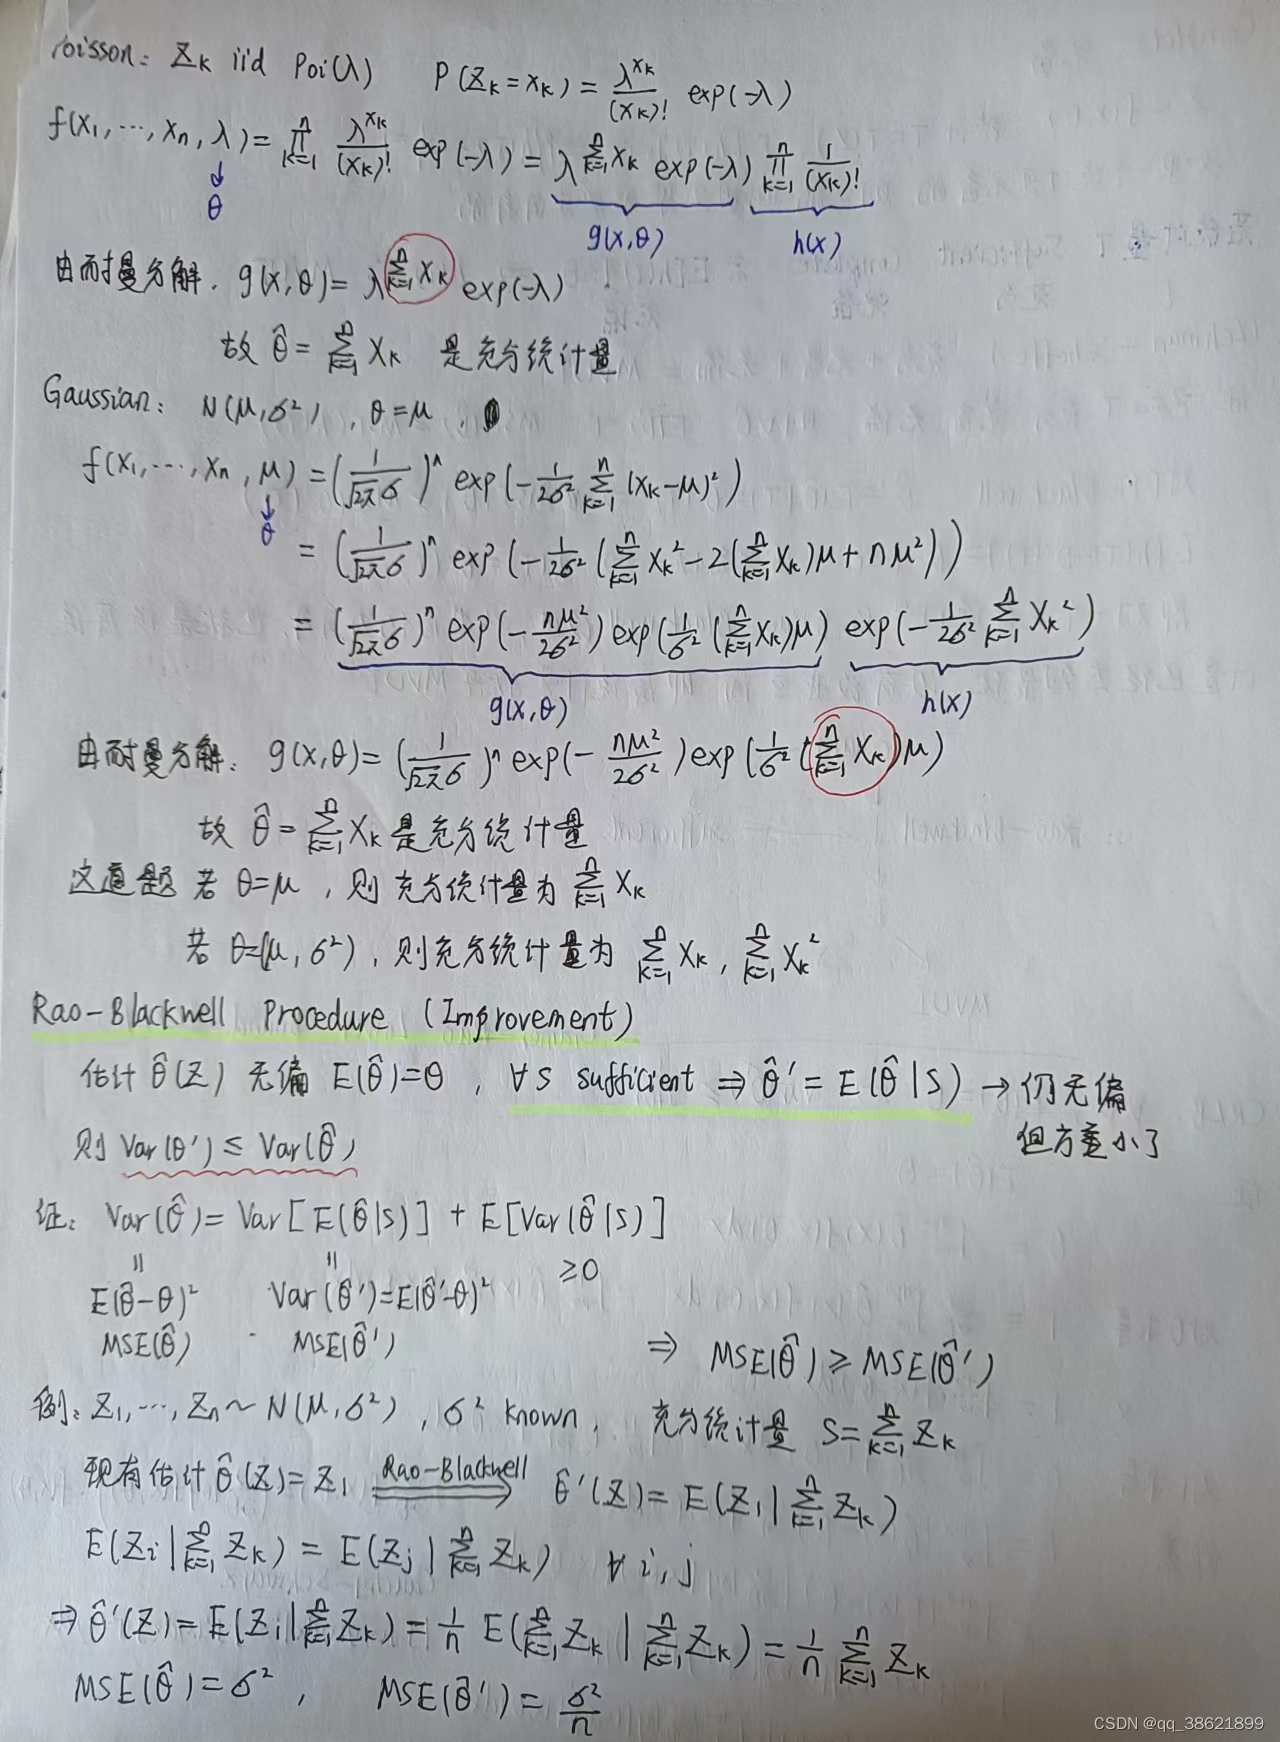 Poisson: Zk iid Poi(λ)  P(Zk=xk) = λ^{xk}/(xk)! exp(-λ)
f(x1,⋯,xn,λ) = ∏_{k=1}^{n} λ^{xk}/(xk)! exp(-λ) = λ^{∑_{k=1}^{n} xk} exp(-λ) ∏_{k=1}^{n} 1/(xk)!
↓
θ  g(x,θ)  h(x)
由耐曼分解. g(x,θ) = λ^{∑_{k=1}^{n} xk} exp(-λ)
故 θ̂ = ∑_{k=1}^{n} Xk 是充分统计量
Gaussian: N(μ,σ²), θ=μ,
f(x1,⋯,xn,μ) = (1/√2π σ)^n exp(-1/2σ² ∑_{k=1}^{n} (xk-μ)²)
↓
θ
= (1/√2π σ)^n exp(-1/2σ² (∑_{k=1}^{n} xk² - 2(∑_{k=1}^{n} xk)μ + nμ²))
= (1/√2π σ)^n exp(-nμ²/2σ²) exp(1/σ² (∑_{k=1}^{n} xk)μ) exp(-1/2σ² ∑_{k=1}^{n} xk²)
g(x,θ)  h(x)
由耐曼分解: g(x,θ) = (1/√2π σ)^n exp(-nμ²/2σ²) exp(1/σ² (∑_{k=1}^{n} Xk)μ)
故 θ̂ = ∑_{k=1}^{n} Xk 是充分统计量
这道题 若 θ=μ, 则 充分统计量为 ∑_{k=1}^{n} Xk
若 θ=(μ,σ²), 则充分统计量为 ∑_{k=1}^{n} Xk, ∑_{k=1}^{n} Xk²
Rao-Blackwell Procedure (Improvement)
估计 θ̂(Z) 无偏 E(θ̂)=θ, ∀S sufficient ⇒ θ̂' = E(θ̂|S) → 仍无偏
但方差小了
则 Var(θ') ≤ Var(θ̂)
证: Var(θ̂) = Var[E(θ̂|S)] + E[Var(θ̂|S)]
=  =  ≥0
E(θ̂-θ)²  Var(θ̂')=E(θ̂'-θ)²
MSE(θ̂)  MSE(θ̂')  ⇒ MSE(θ̂) ≥ MSE(θ̂')
例: Z1,⋯,Zn ~ N(μ,σ²), σ² known, 充分统计量 S=∑_{k=1}^{n} Zk
现有估计 θ̂(Z)=Z1 Rao-Blackwell ⇒ θ̂'(Z) = E(Z1|∑_{k=1}^{n} Zk)
E(Zi|∑_{k=1}^{n} Zk) = E(Zj|∑_{k=1}^{n} Zk) ∀ i,j
⇒ θ̂'(Z) = E(Z1|∑_{k=1}^{n} Zk) = 1/n E(∑_{k=1}^{n} Zk|∑_{k=1}^{n} Zk) = 1/n ∑_{k=1}^{n} Zk
MSE(θ̂)=σ², MSE(θ̂')=σ²/n
CSDN @qq_38621899